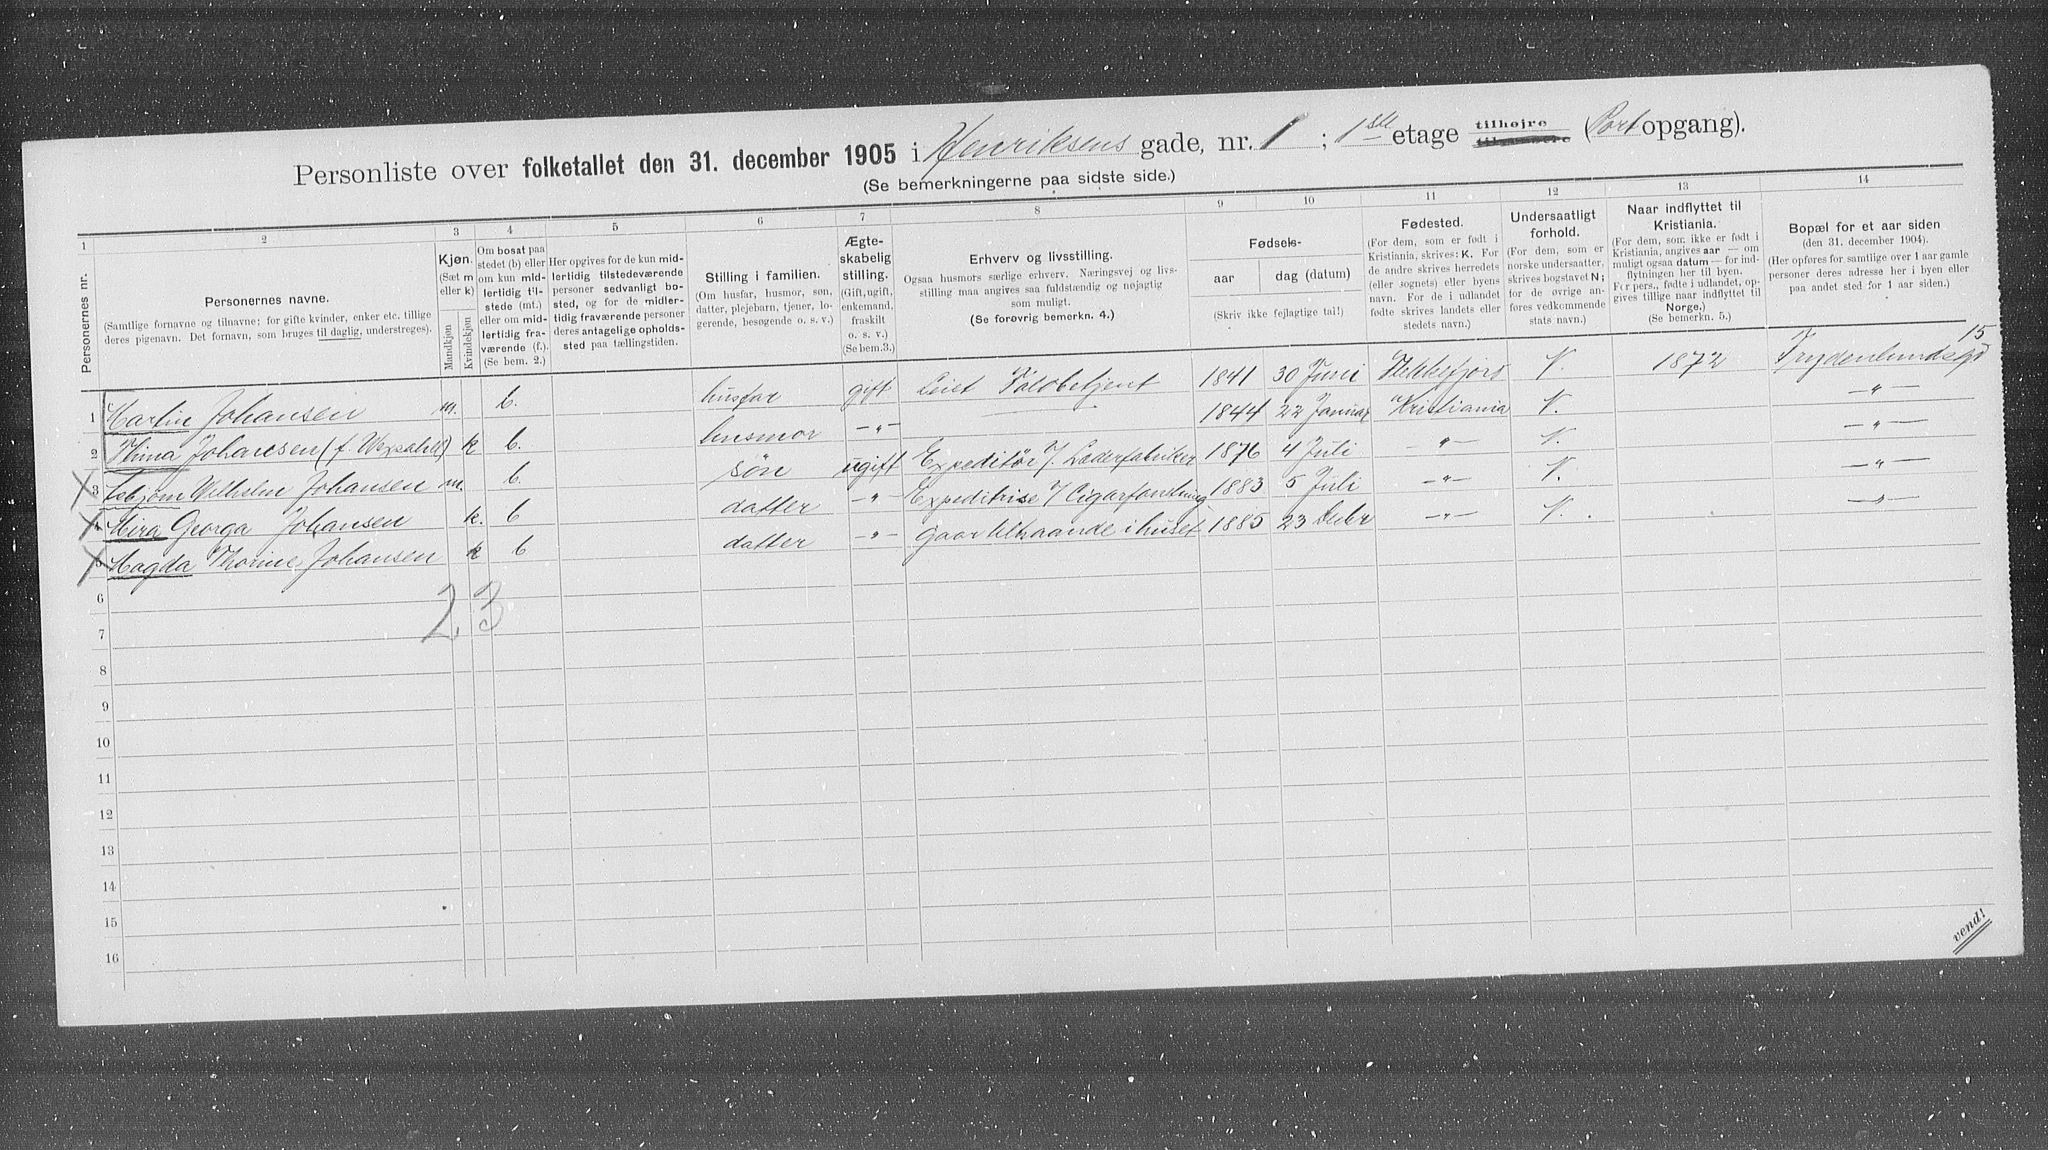 Personliste over folketallet den 31. december 1905 i Henriksens gade, nr. 1 ; 1ste etage tilhøjre tilvenstre (Port opgang).
(Se bemerkningerne paa sidste side.)
1 2 3 4 5 6 7 8 9 10 11 12 13 14
Personernes nr.
Personernes navne.
(Samtlige fornavne og tilnavne; for gifte kvinder, enker etc. tillige
deres pigenavn. Det fornavn, som bruges til daglig, understreges).
Kjøn.
(Sæt m
eller k)
Mandkjøn
Kvindekjøn
Om bosat paa
stedet (b) eller
om kun mid-
lertidig til-
stede (mt.)
eller om mid-
lertidig fra-
værende (f.).
(Se bem. 2.)
Her opgives for de kun mid-
lertidig tilstedeværende
personer sedvanligt bo-
sted, og for de midler-
tidig fraværende personer
deres antagelige opholds-
sted paa tællingstiden.
Stilling i familien.
(Om husfar, husmor, søn,
datter, plejebarn, tjener, lo-
gerende, besøgende o. s. v.)
Ægte-
skabelig
stilling.
(Gift, ugift,
enkemand,
fraskilt
o. s. v.)
(Se bem.3.)
Erhverv og livsstilling.
Ogsaa husmors særlige erhverv. Næringsvej og livs-
stilling maa angives saa fuldstændig og nøjagtig
som muligt.
(Se forøvrig bemerkn. 4.)
Fødsels-
aar
dag (datum)
(Skriv ikke fejlagtige tal!)
Fødested.
(For dem, som er født i
Kristiania, skrives: K. For
de andre skrives herredets
(eller sognets) eller byens
navn. For de i udlandet
fødte skrives landets eller
stedets navn.)
Undersaatligt
forhold.
(For dem, som er
norske undersaatter,
skrives bogstavet N;
for de øvrige an-
føres vedkommende
stats navn.)
Naar indflyttet til
Kristiania.
(For dem, som ikke er født i
Kristiania, angives aar — om
muligt ogsaa datum — for ind-
flytningen her til byen.
For pers., fødte i udlandet, op-
gives tillige naar indflyttet til
Norge.)
(Se bemerkn. 5.)
Bopæl for et aar siden
(den 31. december 1904).
(Her opføres for samtlige over 1 aar gamle
personer deres adresse her i byen eller
paa andet sted for 1 aar siden.)
1 Martin Johansen m. b. husfar gift Leiet Toldbetjent 1841 30 Juni Flekkefjors N. 1872 Frydenlundsgd 15
2 Thina Johansen (f. ) k b. husmor —"— 1844 22 Januar Kristiania N. —"—
3 Wilhelm Johansen m. b. søn ugift Expeditør i/ Læderfabriker 1876 4 Juli —"— N. —"—
4 Georga Johansen k. b datter —"— Expeditrise i/ Cigarforretning 1883 5 Juli —"— N. —"—
5 Magda Thorine Johansen k b datter —"— gaar tilhaande i huset 1885 23 Decbr —"— N. —"—
6
2 3
7
8
9
10
11
12
13
14
15
16
vend!